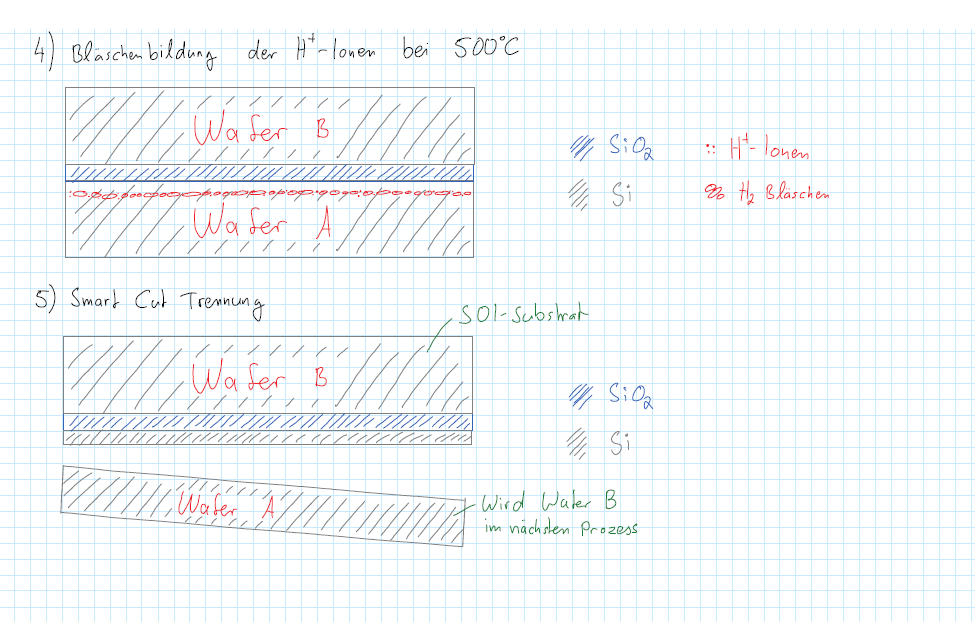 4) Bläschenbildung der H⁺-Ionen bei 500°C
Wafer B
Wafer A
SiO₂
:: H⁺-Ionen
Si
H₂ Bläschen
5) Smart Cut Trennung
SOI-Substrat
Wafer B
SiO₂
Si
Wafer A
Wird Wafer B
im nächsten Prozess